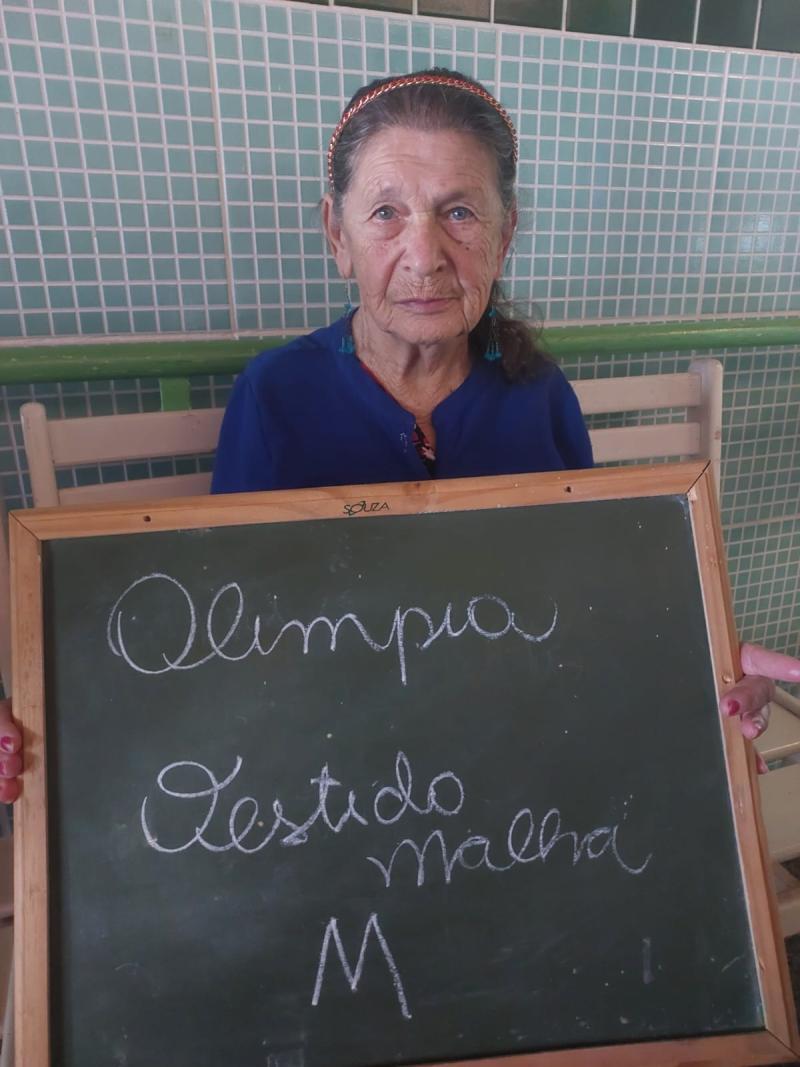 SOUZA
Olimpia
Vestido
malha
M